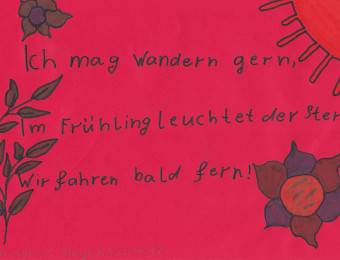 Ich mag Wandern gern,
Im Frühling leuchtet der Ster
Wir fahren bald fern!